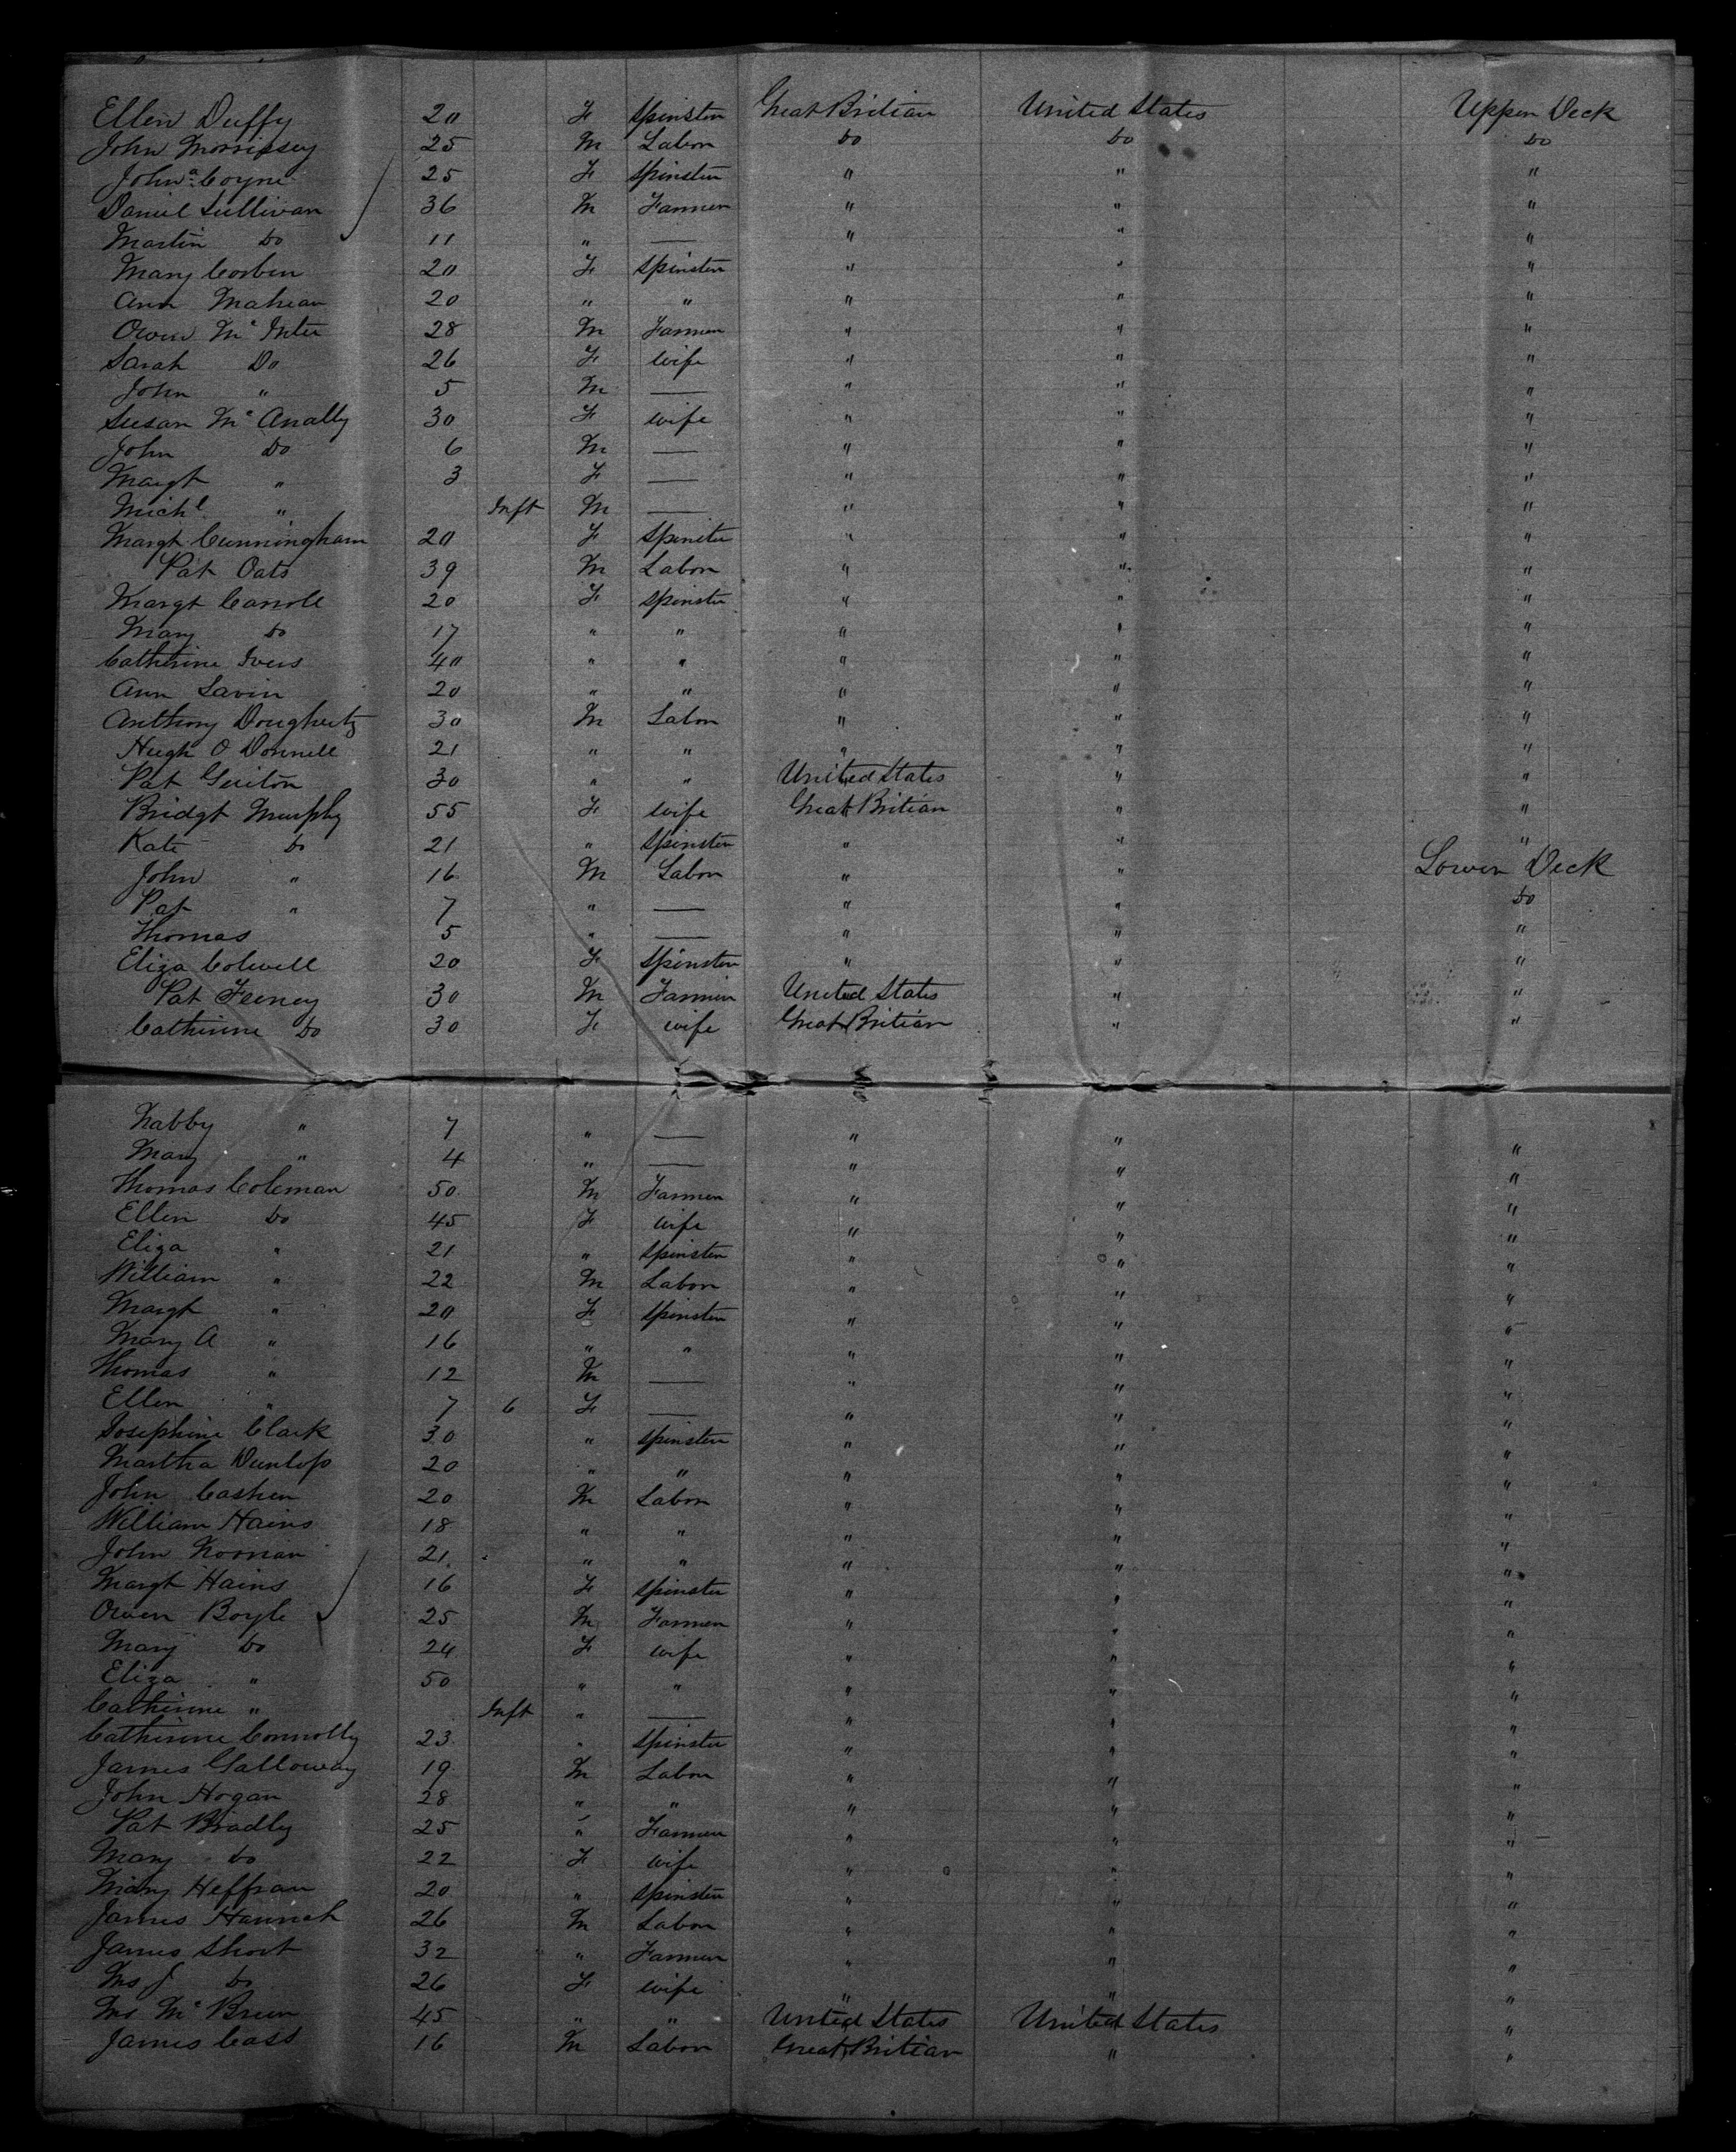 Ellen Duffy 20 F Spinster Great Britian United States Upper Deck
John Morrissey 25 M Labor Do Do Do
Johna Coyne 25 F Spinster " " "
Daniel Sullivan 36 M Farmer " " "
Martin Do 11 " — " " "
Mary Corben 20 F Spinster " " "
Ann Mahean 20 " " " " "
Owen Mc Inter 28 M Farmer " " "
Sarah Do 26 F wife " " "
John " 5 M — " " "
Susan Mc Anally 30 F wife " " "
John Do 6 M — " " "
Margt " 3 F — " " "
Michl " Inft M — " " "
Margt Cunningham 20 F Spinster " " "
Pat Oats 39 M Labor " " "
Margt Carroll 20 F Spinster " " "
Mary Do 17 " " " " "
Catherine Ivers 40 " " " " "
Ann Lavin 20 " " " " "
Anthony Doughertz 30 M Labor " " "
Hugh O Donnell 21 " " " " "
Pat Guiton 30 " " United States " "
Bridgt Murphy 55 F wife Great Britian " "
Kate Do 21 " Spinster " " "
John " 16 M Labor " " Lower Deck
Pat " 7 " — " " Do
Thomas 5 " — " " "
Eliza Colwell 20 F Spinster " " "
Pat Feeney 30 M Farmer United States " "
Catherine Do 30 F wife Great Britian " "
Nabby " 7 " — " " "
Mary " 4 " — " " "
Thomas Coleman 50 M Farmer " " "
Ellen Do 45 F wife " " "
Eliza " 21 " Spinster " " "
William " 22 M Labor " " "
Margt " 20 F Spinster " " "
Mary A " 16 " " " " "
Thomas " 12 M — " " "
Ellen " 7 6 F — " " "
Josephine Clark 30 " Spinster " " "
Martha Dunlop 20 " " " " "
John Cashen 20 M Labor " " "
William Hains 18 " " " " "
John Noonan 21 " " " " "
Margt Hains 16 F Spinster " " "
Owen Boyle 25 M Farmer " " "
Mary Do 24 F wife " " "
Eliza " 50 " " " " "
Catherine " Inft " — " " "
Catherine Connolly 23 " Spinster " " "
James Galloway 19 M Labor " " "
John Hogan 28 " " " " "
Pat Bradley 25 " Farmer " " "
Mary Do 22 F wife " " "
Mary Heffran 20 " Spinster " " "
James Hannah 26 M Labor " " "
James Short 32 " Farmer " " "
Ms J Do 26 F wife " " "
Ms Mc Breen 45 " " United States United States "
James Cass 16 M Labor Great Britian " "